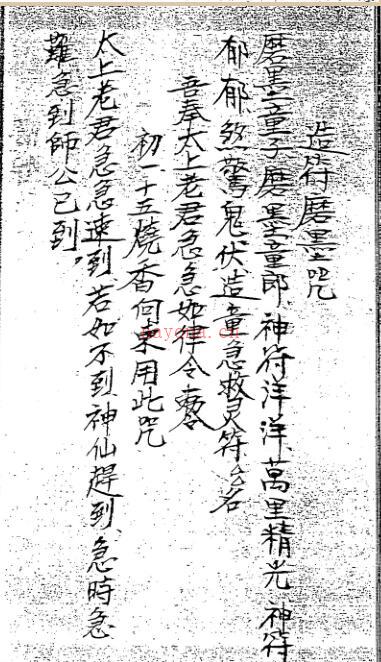 造符磨墨咒
磨墨童子磨墨童郎神符洋洋萬里精光神符
郁郁煞驚鬼伏造童急救灵符
吾奉太上老君急急如律令
初一十五燒香何東用此咒
太上老君急急速到若如不到神仙趕到急時急
難急到師公已到